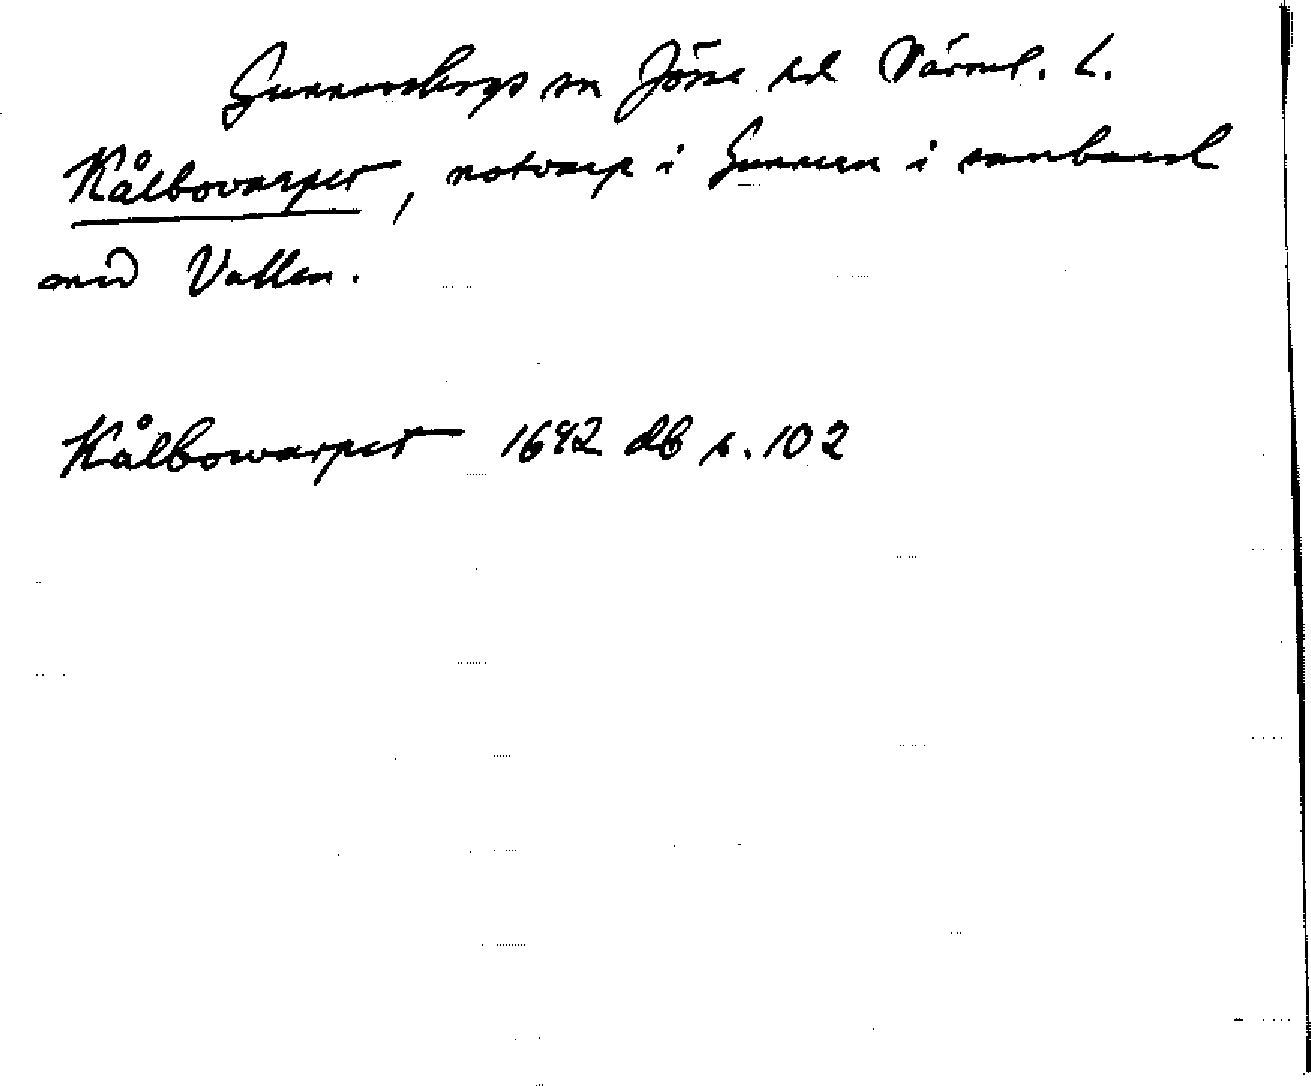 Gunnarskogs sn Jösse hd Värml. l.
Kålbovarpet, notvarp i Gunnern i samband
med Vallen.
Kålbowarpet 1692 db s. 102